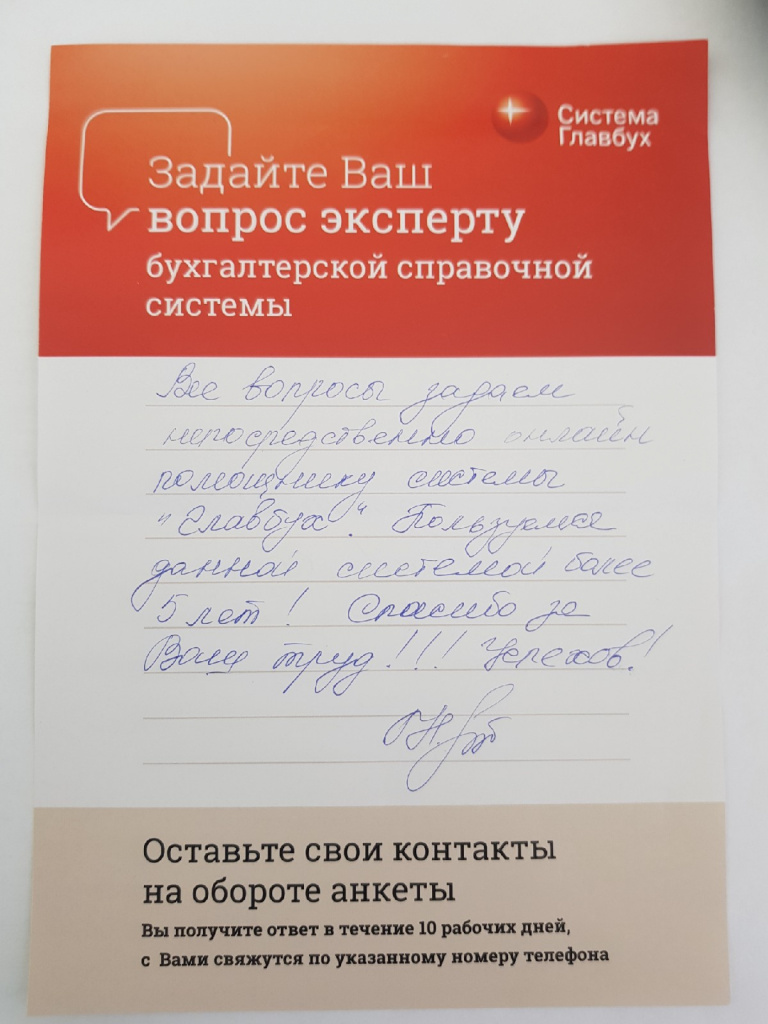 Система
Главбух
Задайте Ваш
вопрос эксперту
бухгалтерской справочной
системы
Все вопросы задаем
непосредственно онлайн
помощнику системы
"Главбух". Пользуемся
данной системой более
5 лет! Спасибо за
Ваш труд!!! Успехов!
Оставьте свои контакты
на обороте анкеты
Вы получите ответ в течение 10 рабочих дней,
с Вами свяжутся по указанному номеру телефона